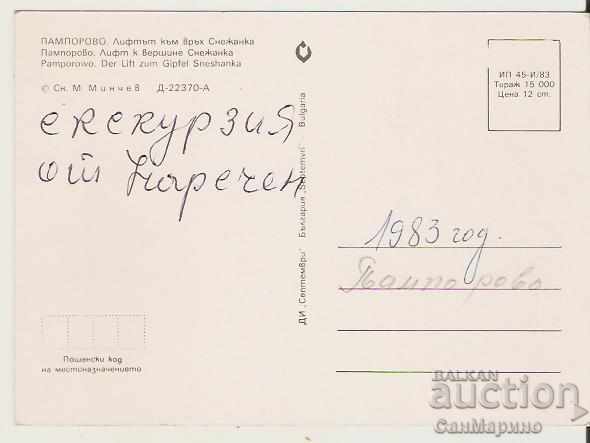 ПАМПОРОВО. Лифтът към връх Снежанка
Пампорово. Лифт к вершине Снежанка
Pamporowo. Der Lift zum Gipfel Sneshanka
© Сн. М. Минчев Д-22370-А
екскурзия
от Наречен
ДИ „Септември" България „Septemvri" Bulgaria
ИП 45-И/83
Тираж 15 000
Цена 12 ст.
1983 год.
Пампорово
Пощенски код
на местоназначението
BALKAN
auction
СанМарино